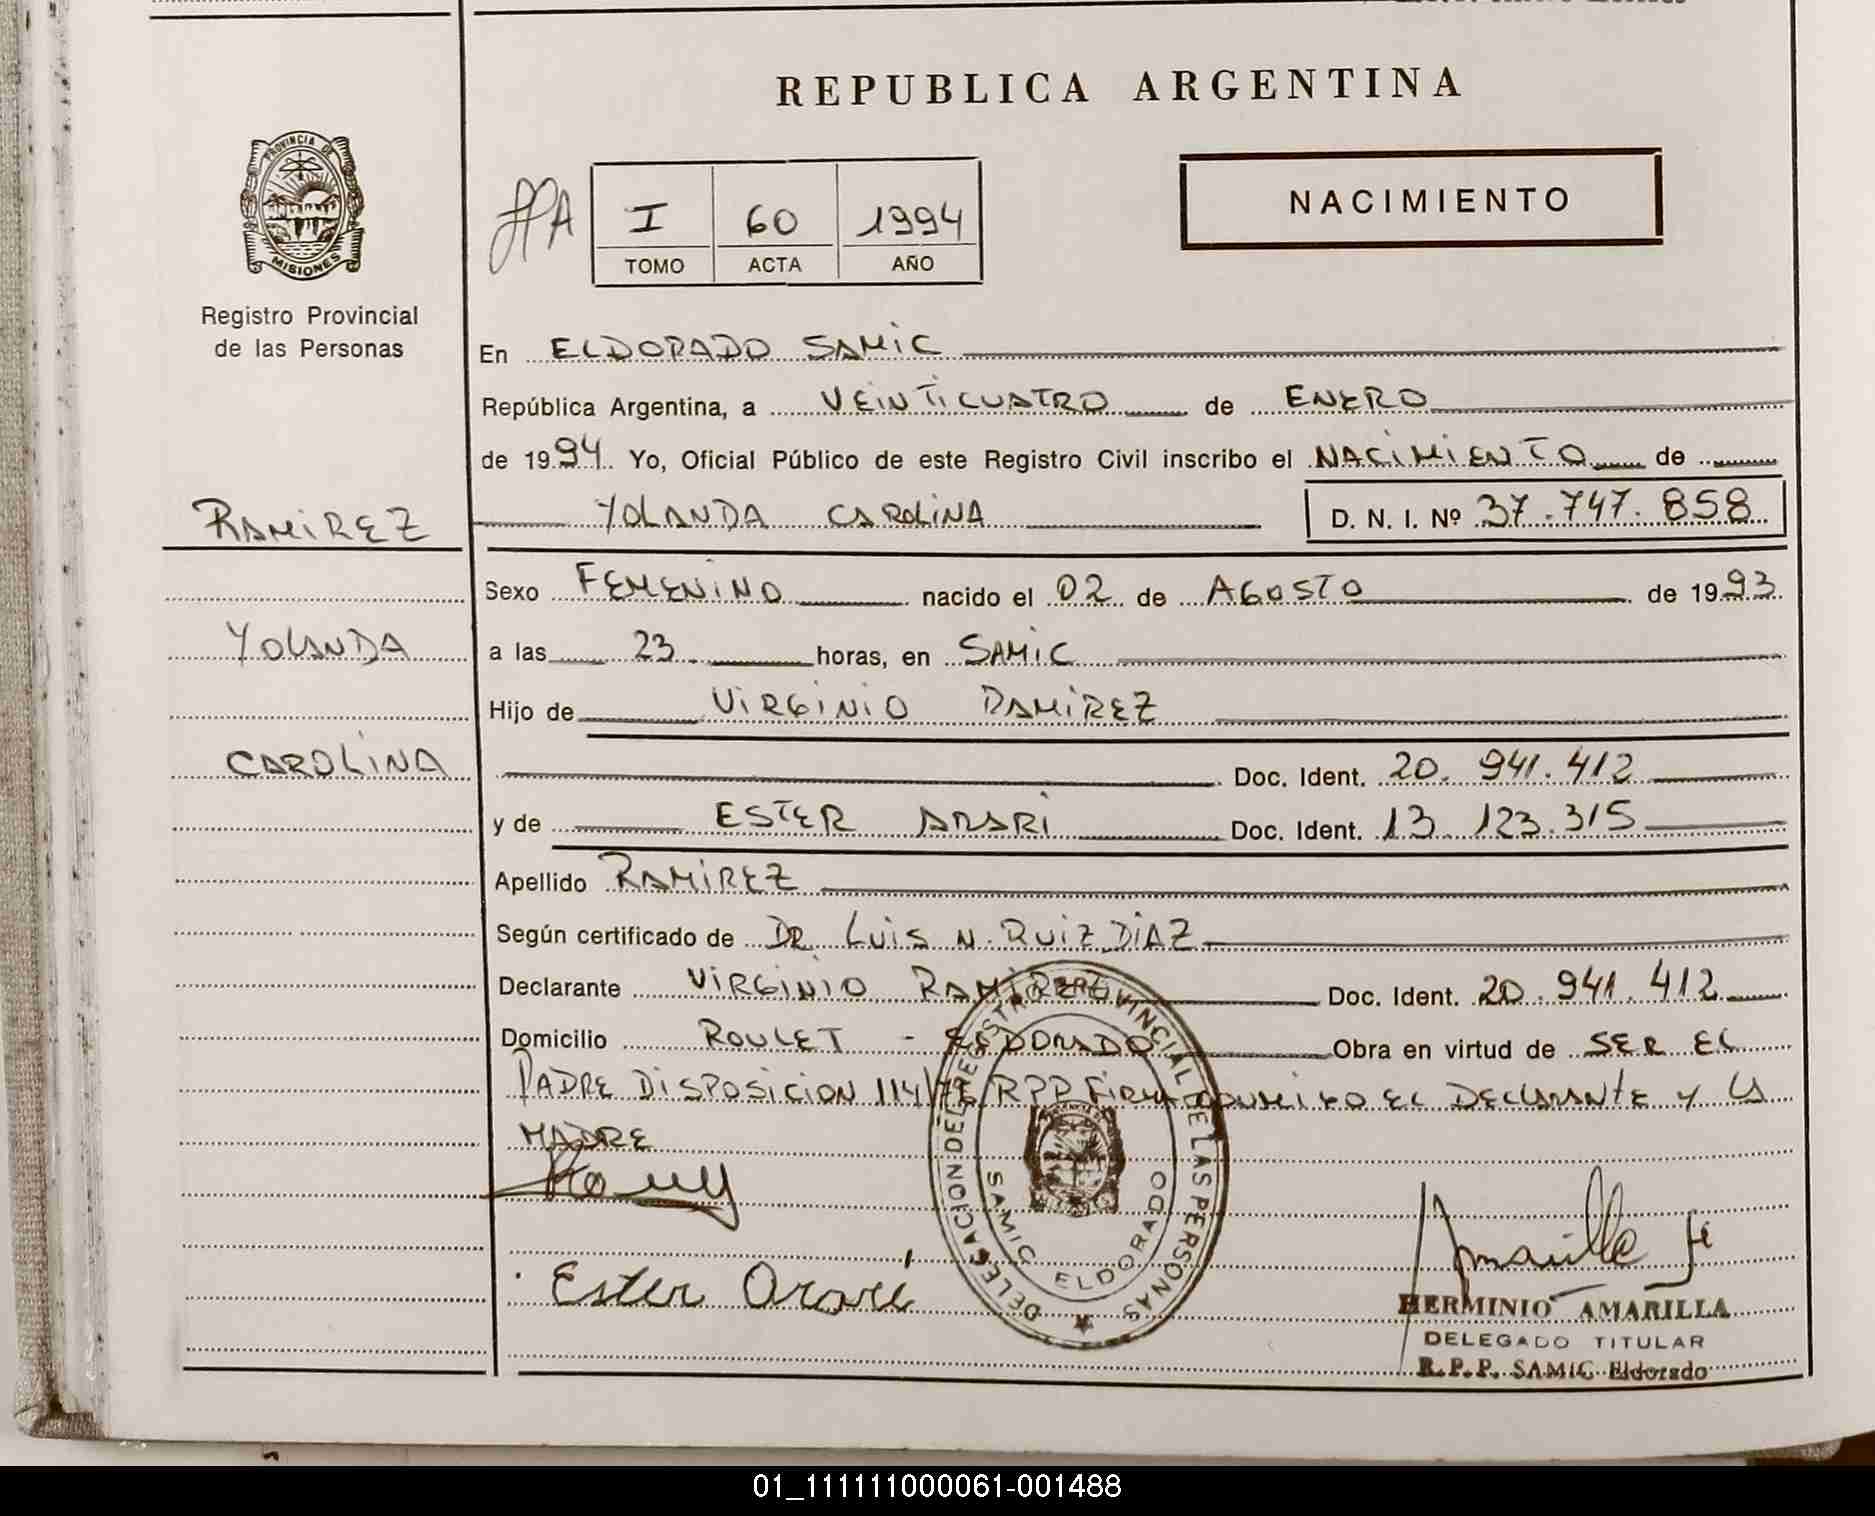 REPUBLICA ARGENTINA
PROVINCIA DE
MISIONES
Registro Provincial
de las Personas
I 60 1994
TOMO ACTA AÑO
NACIMIENTO
En ELDORADO SAMIC
República Argentina, a VEINTICUATRO de ENERO
de 1994. Yo, Oficial Público de este Registro Civil inscribo el NACIMIENTO de
YOLANDA CAROLINA D. N. I. Nº 37.747.858
RAMIREZ
YOLANDA
CAROLINA
Sexo FEMENINO nacido el 02 de AGOSTO de 1993
a las 23 horas, en SAMIC
Hijo de VIRGINIO RAMIREZ
Doc. Ident. 20.941.412
y de ESTER ARARI Doc. Ident. 13.123.315
Apellido RAMIREZ
Según certificado de DR LUIS N. RUIZ DIAZ
Declarante VIRGINIO RAMIREZ Doc. Ident. 20.941.412
Domicilio ROULET - ELDORADO Obra en virtud de SER EL
PADRE DISPOSICION 114/76 RPP FIRMAN CONMIGO EL DECLARANTE Y LA
MADRE
Ester Ararí
DELEGACION DEL REGISTRO PROVINCIAL DE LAS PERSONAS
SAMIC ELDORADO
HERMINIO AMARILLA
DELEGADO TITULAR
R.P.P. SAMIC Eldorado
01_111111000061-001488